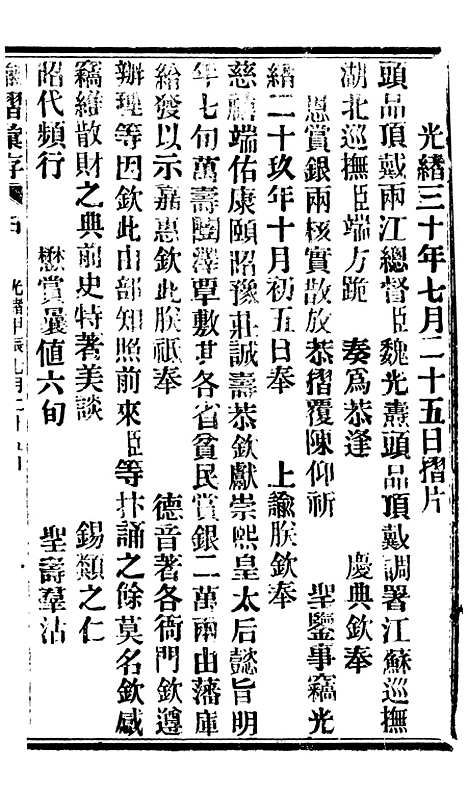 光緒三十年七月二十五日摺片
頭品頂戴兩江總督臣魏光燾頭品頂戴調署江蘇巡撫
湖北巡撫臣端方跪　奏爲恭逢　慶典欽奉
恩賞銀兩核實散放恭摺覆陳仰祈　聖鑒事竊光
緒二十玖年十月初五日奉　上諭朕欽奉
慈禧端佑康頤昭豫莊誠壽恭欽獻崇熙皇太后懿旨明
年七旬萬壽闓澤覃敷其各省貧民賞銀二萬兩由藩庫
給發以示嘉惠欽此朕祗奉　德音著各衙門欽遵
辦理等因欽此由部知照前來臣等抃誦之餘莫名欽感
竊維散財之典前史特著美談　錫類之仁
昭代頻行　懋賞曩值六旬　聖壽羣沾
摺彙存　光緒甲辰七月二十九日